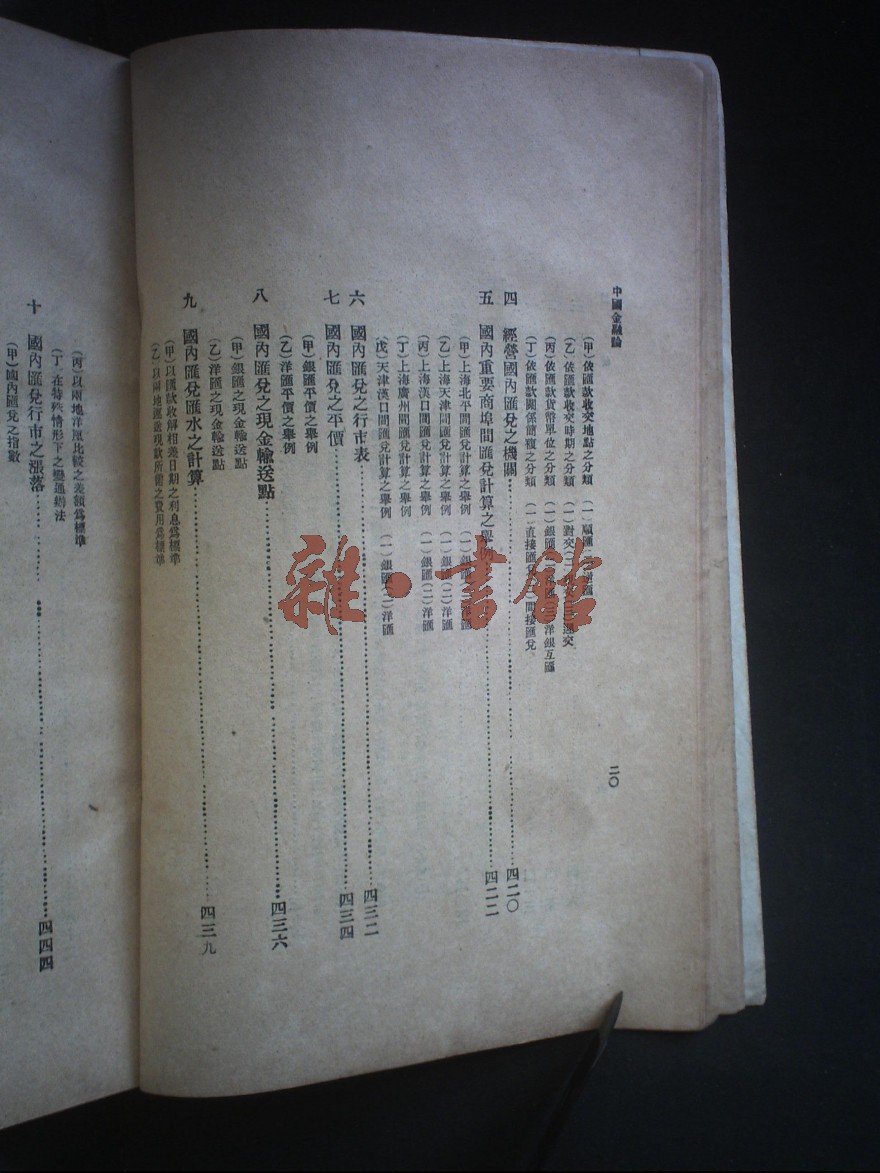 中國金融論
二〇
(甲)依匯款收交地點之分類 (一)順匯
(乙)依匯款收交時期之分類 (一)對交
(丙)依匯款貨幣單位之分類 (一)銀匯 洋銀互匯
(丁)依匯款關係簡複之分類 (一)直接匯兌 間接匯兌
四 經營國內匯兌之機關 四二〇
五 國內重要商埠間匯兌計算之舉例 四二二
(甲)上海北平間匯兌計算之舉例 (一)銀匯
(乙)上海天津間匯兌計算之舉例 (一)銀匯(二)洋匯
(丙)上海漢口間匯兌計算之舉例 (一)銀匯(二)洋匯
(丁)上海廣州間匯兌計算之舉例
(戊)天津漢口間匯兌計算之舉例 (一)銀匯(二)洋匯
六 國內匯兌之行市表 四三二
七 國內匯兌之平價 四三四
(甲)銀匯平價之舉例
(乙)洋匯平價之舉例
八 國內匯兌之現金輸送點 四三六
(甲)銀匯之現金輸送點
(乙)洋匯之現金輸送點
九 國內匯兌匯水之計算 四三九
(甲)以匯款收解相差日期之利息爲標準
(乙)以兩地運送現款所需之費用爲標準
(丙)以兩地洋厘比較之差額爲標準
(丁)在特殊情形下之變通辦法
十 國內匯兌行市之漲落 四四四
(甲)國內匯兌之指數
雜·書館